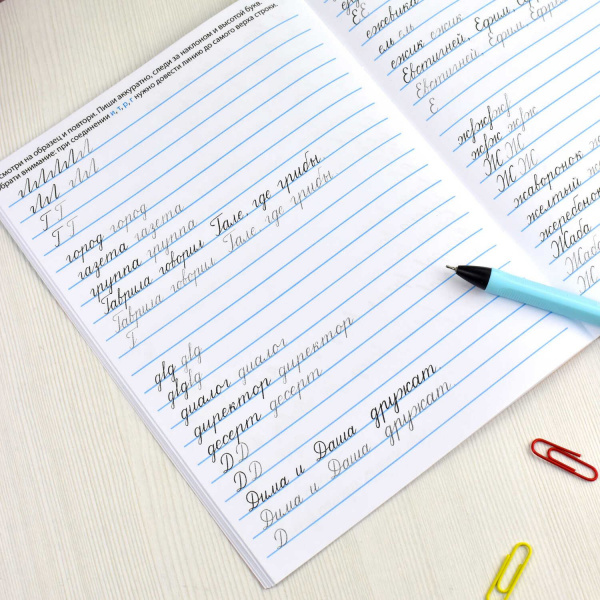 смотри на образец и повтори. Пиши аккуратно, следи за наклоном и высотой букв.
обрати внимание: при соединении и, т, р, г нужно довести линию до самого верха строки.
Г Г
Г Г
город город
газета газета
группа группа
Гаврила говорил Гале, где грибы.
Гаврила говорил Гале, где грибы.
Г
д д д д
д д д д
диалог диалог
директор директор
десерт десерт
Д Д
Д
Дима и Даша дружат.
Дима и Даша дружат.
Д
Ё
ежевика
ем ем
ежик ежик
Евстигней, Ефим,
Евстигней Ефим
Е
ж ж ж
ж ж ж ж
Ж Ж
Ж Ж
жаворонок
желтый
жеребенок
Жаба
Жаба
Ж